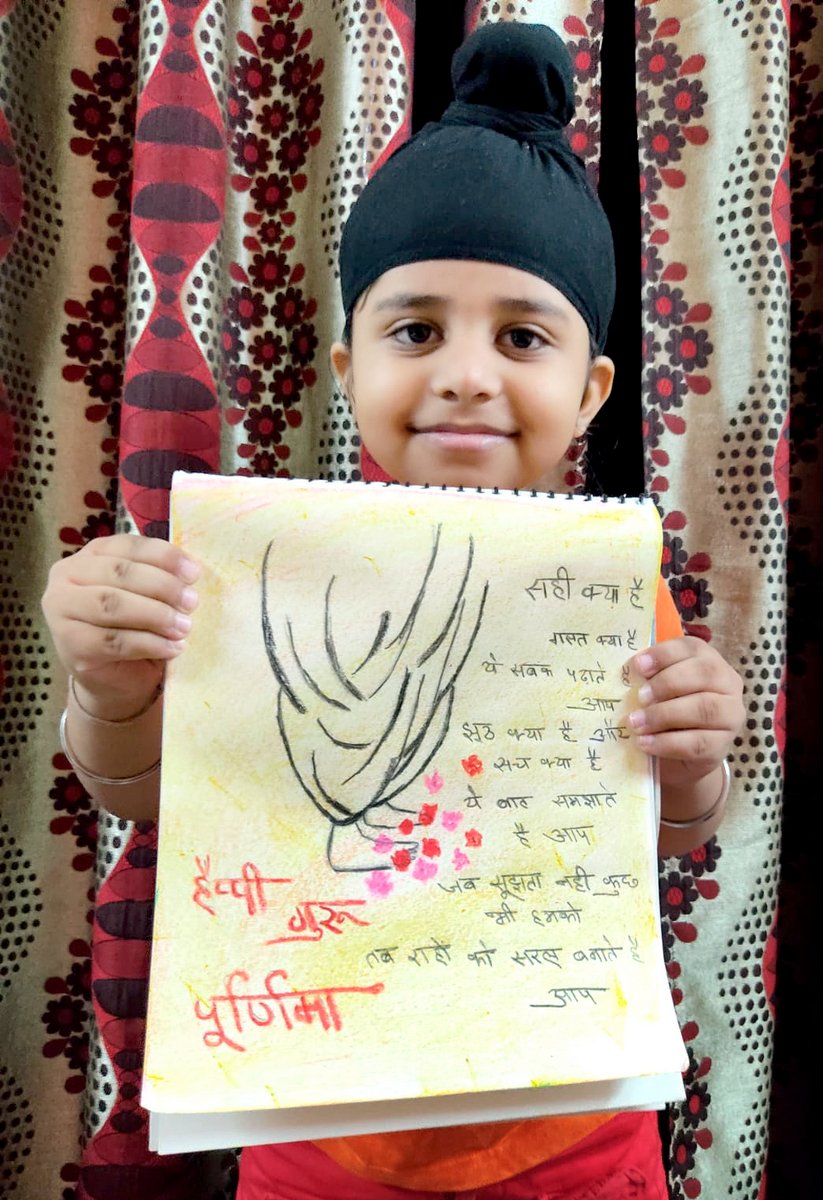 सही क्या है
गलत क्या है
ये सबक पढाते है
आप
झुठ क्या है और
सच क्या है
ये बात समझाते
है आप
जब सूझता नही कुछ
भी हमको
तब राहो को सरल बनाते है
आप
हैप्पी
गुरू
पूर्णिमा